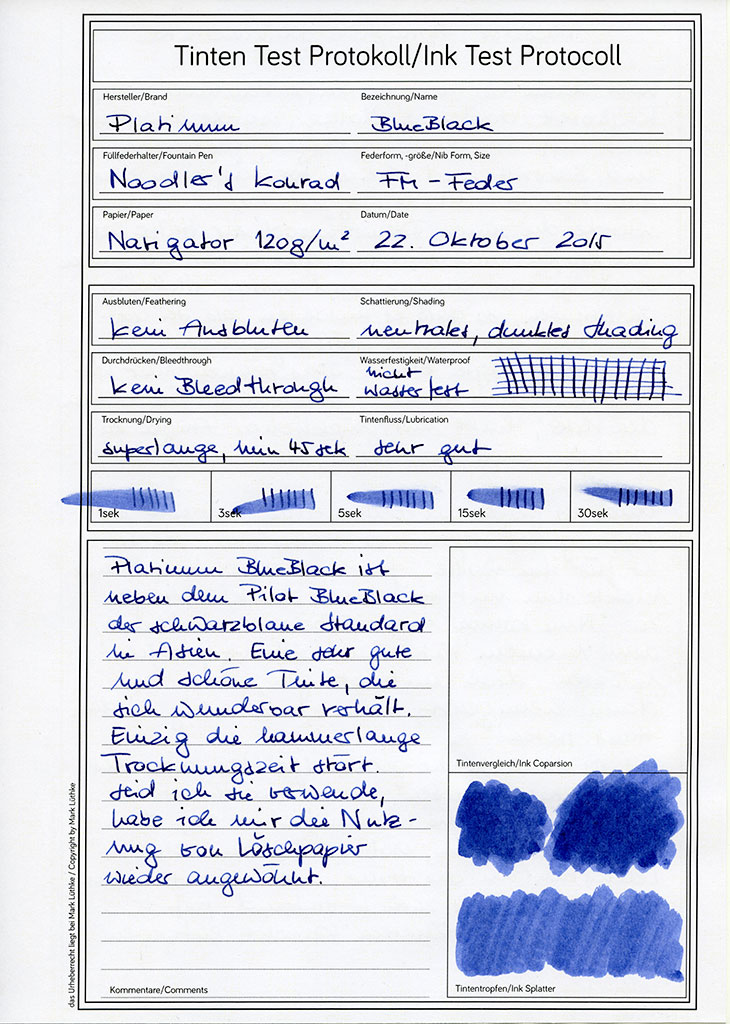 Tinten Test Protokoll/Ink Test Protocoll
Hersteller/Brand
Platinum
Bezeichnung/Name
BlueBlack
Füllfederhalter/Fountain Pen
Noodler's Konrad
Federform, -größe/Nib Form, Size
FM - Feder
Papier/Paper
Navigator 120g/m²
Datum/Date
22. Oktober 2015
Ausbluten/Feathering
kein Ausbluten
Schattierung/Shading
neutrales, dunkles Shading
Durchdrücken/Bleedthrough
kein Bleedthrough
Wasserfestigkeit/Waterproof
nicht
wasserfest
Trocknung/Drying
superlange, min 45 sek
Tintenfluss/Lubrication
sehr gut
1sek
3sek
5sek
15sek
30sek
Platinum BlueBlack ist
neben dem Pilot BlueBlack
der schwarzblaue Standard
in Asien. Eine sehr gute
und schöne Tinte, die
sich wunderbar verhält.
Einzig die hammerlange
Trocknungszeit stört.
Seid ich sie verwende,
habe ich mir die Nutz-
ung von Löschpapier
wieder angewöhnt.
Kommentare/Comments
Tintenvergleich/Ink Coparsion
Tintentropfen/Ink Splatter
das Urheberrecht liegt bei Mark Lüthke / Copyright by Mark Lüthke